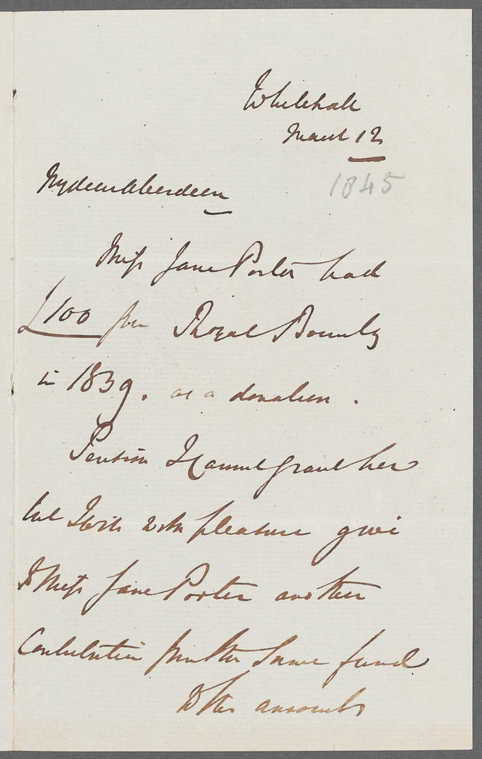 Whitehall
March 12
1845
My dear Aberdeen
Miss Jane Porter had
£100 from Royal Bounty
in 1839. as a donation.
Pension I cannot grant her
but I will with pleasure give
to Miss Jane Porter another
Contribution from the same fund
to the amount